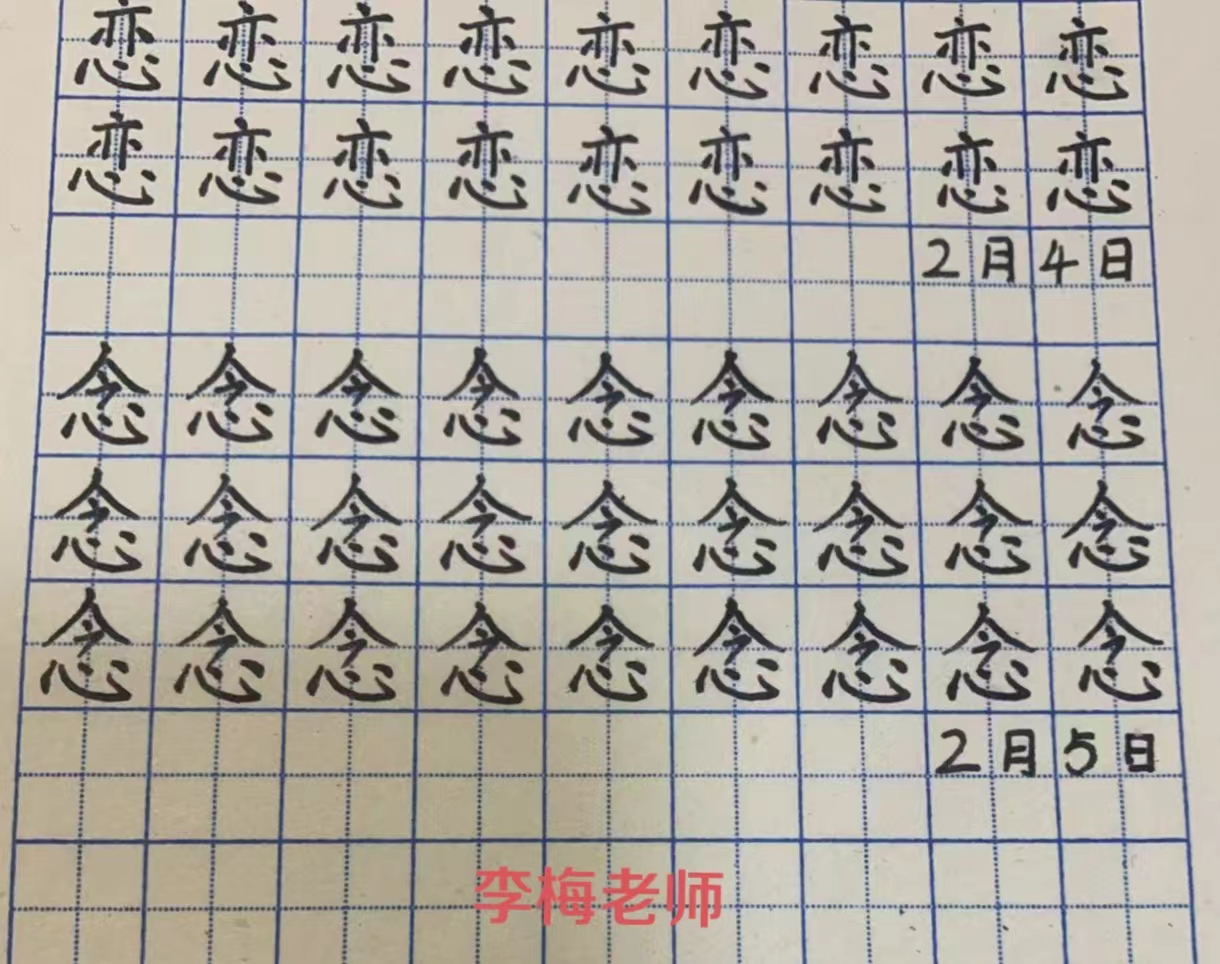 恋恋恋恋恋恋恋恋恋
恋恋恋恋恋恋恋恋恋
2月4日
念念念念念念念念念
念念念念念念念念念
念念念念念念念念念
2月5日
李梅老师